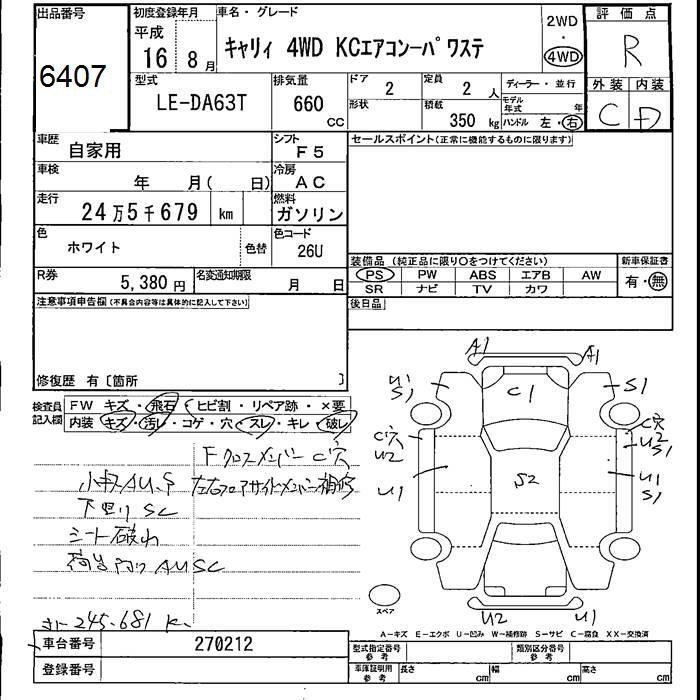 出品番号
6407
初度登録年月
平成
16年8月
車名・グレード
キャリィ 4WD KCエアコンーパワステ
2WD
・
4WD
評価点
R
型式
LE-DA63T
排気量
660
CC
ドア
2
形状
定員
2人
積載
350 kg
ディーラー・並行
モデル年式 年
ハンドル 左・右
外装 内装
C D
車歴
自家用
シフト
F5
車検
年 月( 日)
冷房
AC
走行
24万5千679 km
燃料
ガソリン
色
ホワイト
色替
色コード
26U
R券
5,380円
名変通知期限
月 日
セールスポイント(正常に機能するものに限ります)
装備品 (純正品に限り○をつけてください)
PS PW ABS エアB AW
SR ナビ TV カワ
新車保証書
有・無
後日品
注意事項申告欄(不具合内容等は具体的に記入して下さい)
修復歴 有〔箇所 〕
検査員記入欄
FW キズ・飛石・ヒビ割・リペア跡・×要
内装 キズ・汚レ・コゲ・穴・スレ・キレ・破レ
Fクロスメンバー C穴
小キズAU.S
左右フロアサイドメンバー補修
下廻り SC
シート破れ
荷台 AUSC
245.681 K
A1 A1
U1 S1
C1
S1
C穴 U2
C穴 U2 S1
U1
S2
U1 S1
スペア
U2 U1
A-キズ E-エクボ U-凹み W-補修跡 S-サビ C-腐食 XX-交換済
車台番号
270212
登録番号
型式指定番号 参考
類別区分番号 参考
車庫証明用 参考
長さ cm
幅 cm
高さ cm